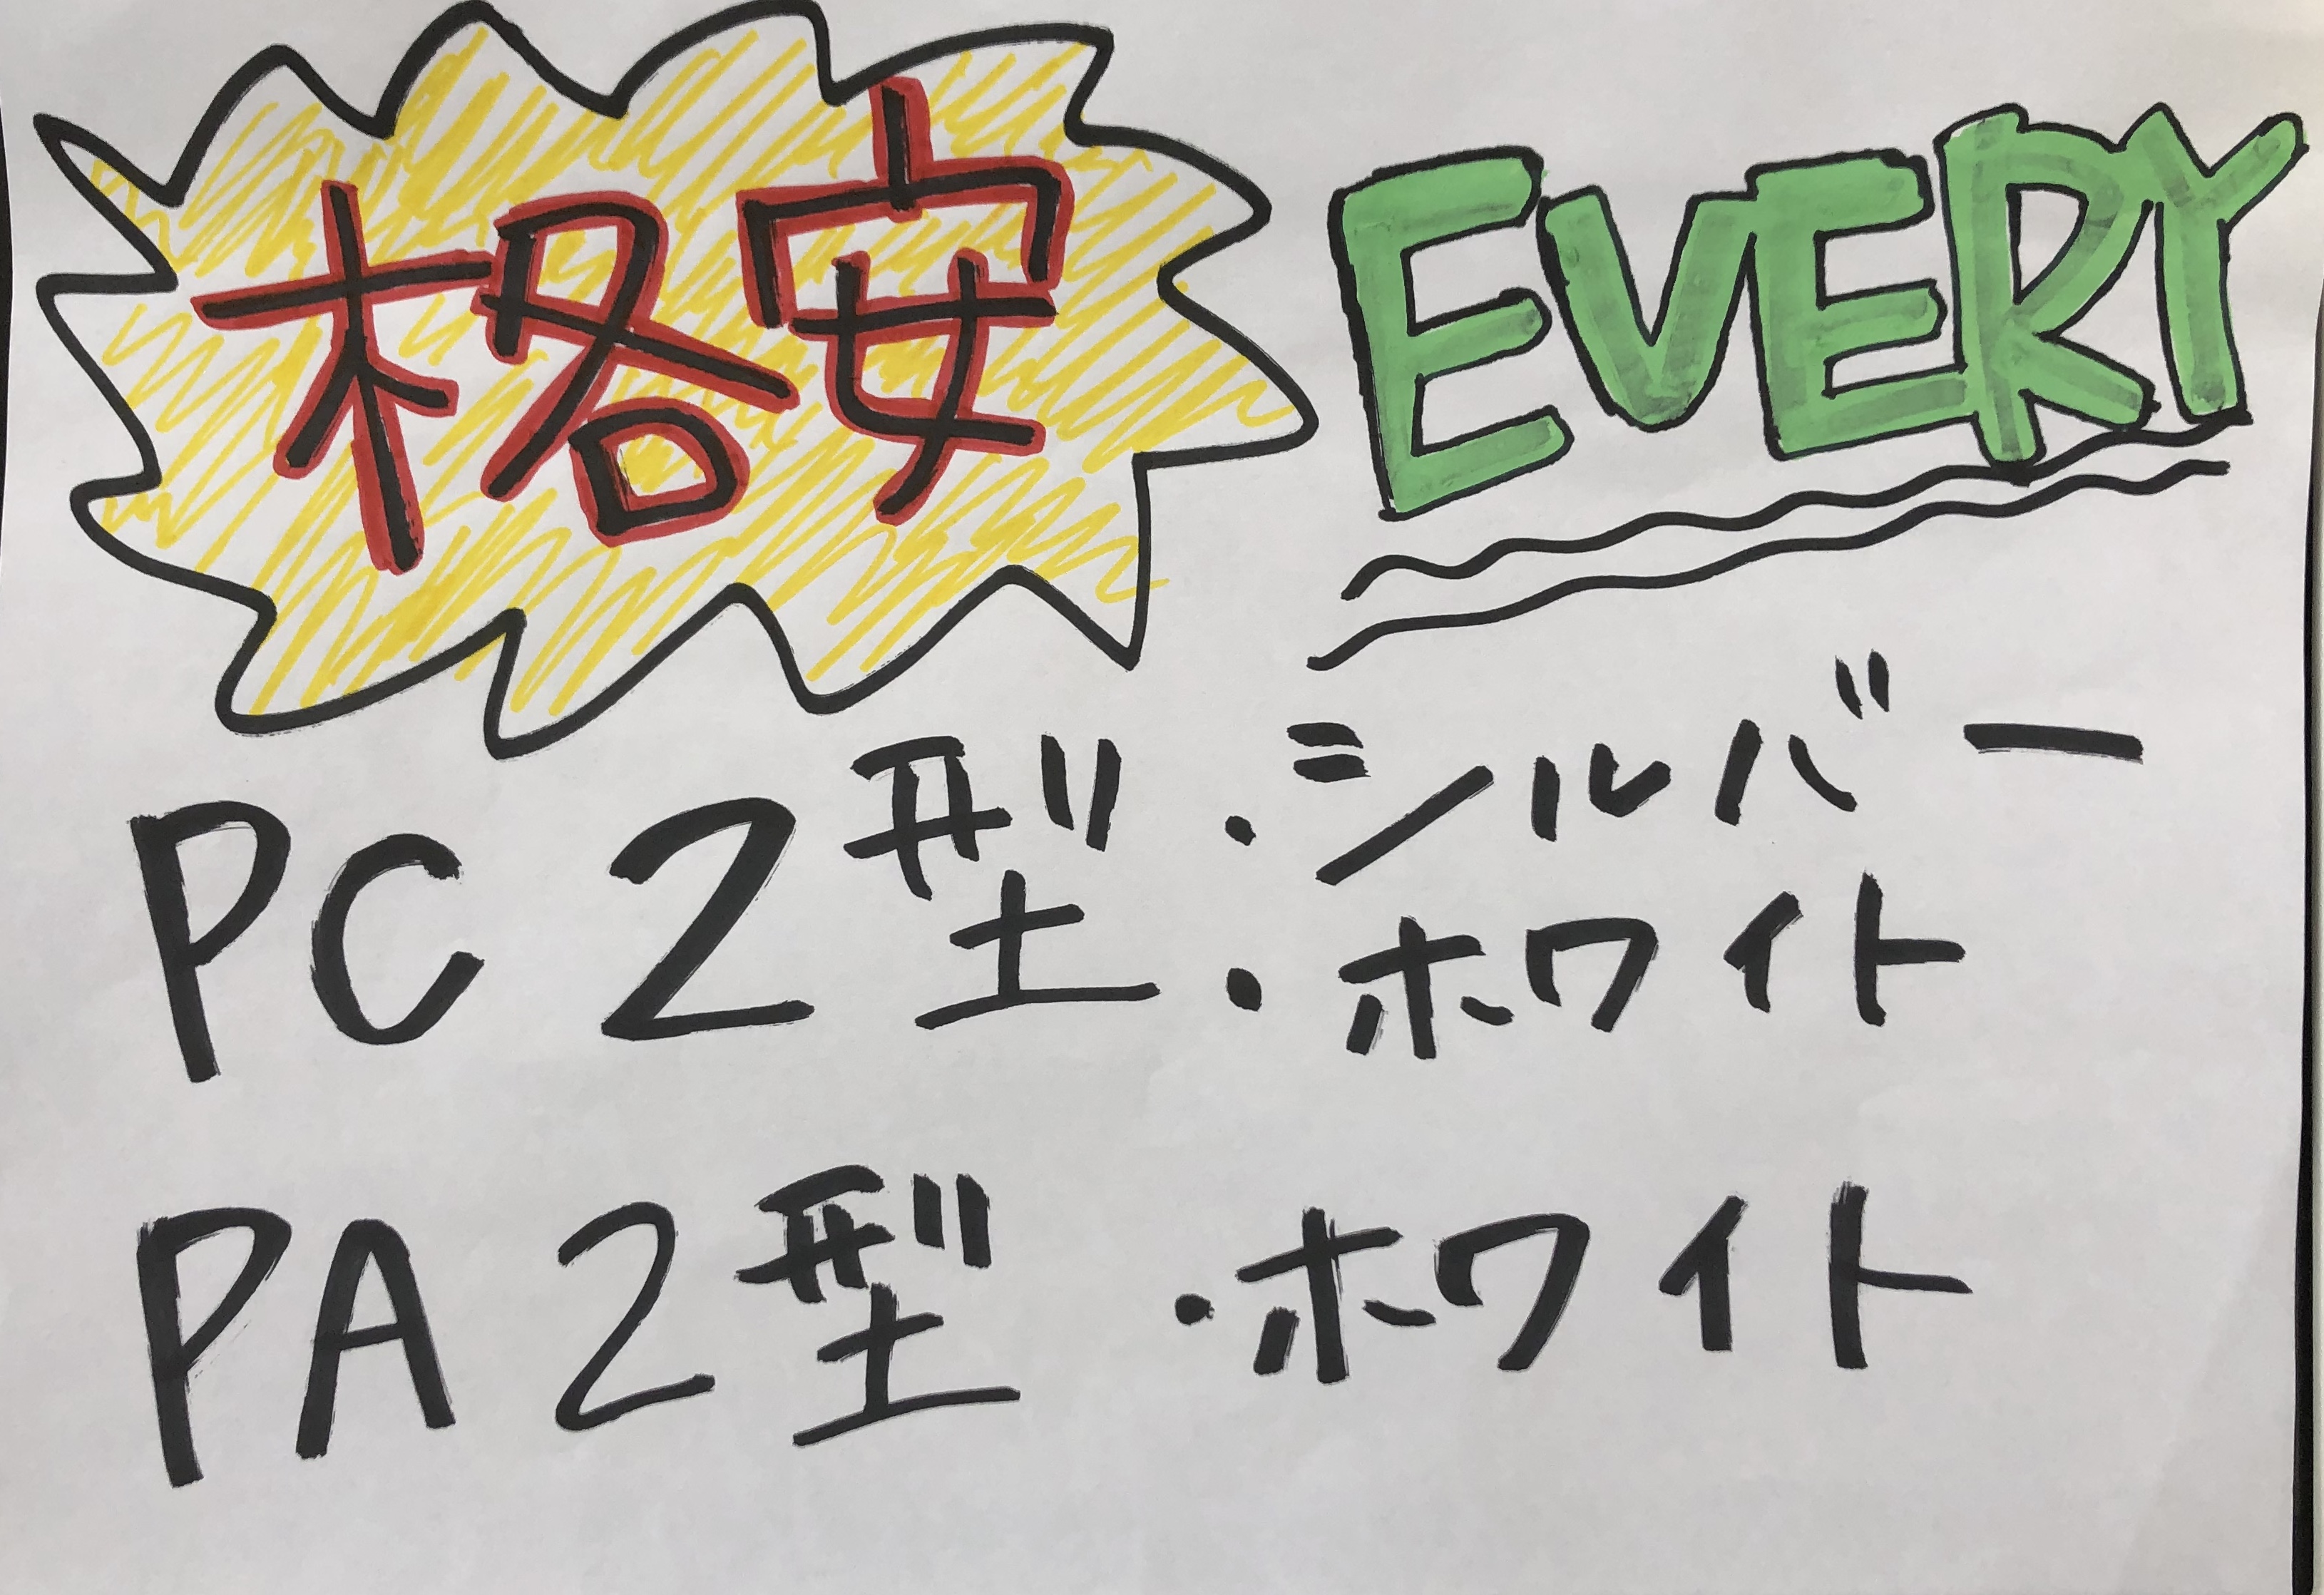 格安 EVERY
PC 2型 ・シルバー
・ホワイト
PA 2型 ・ホワイト